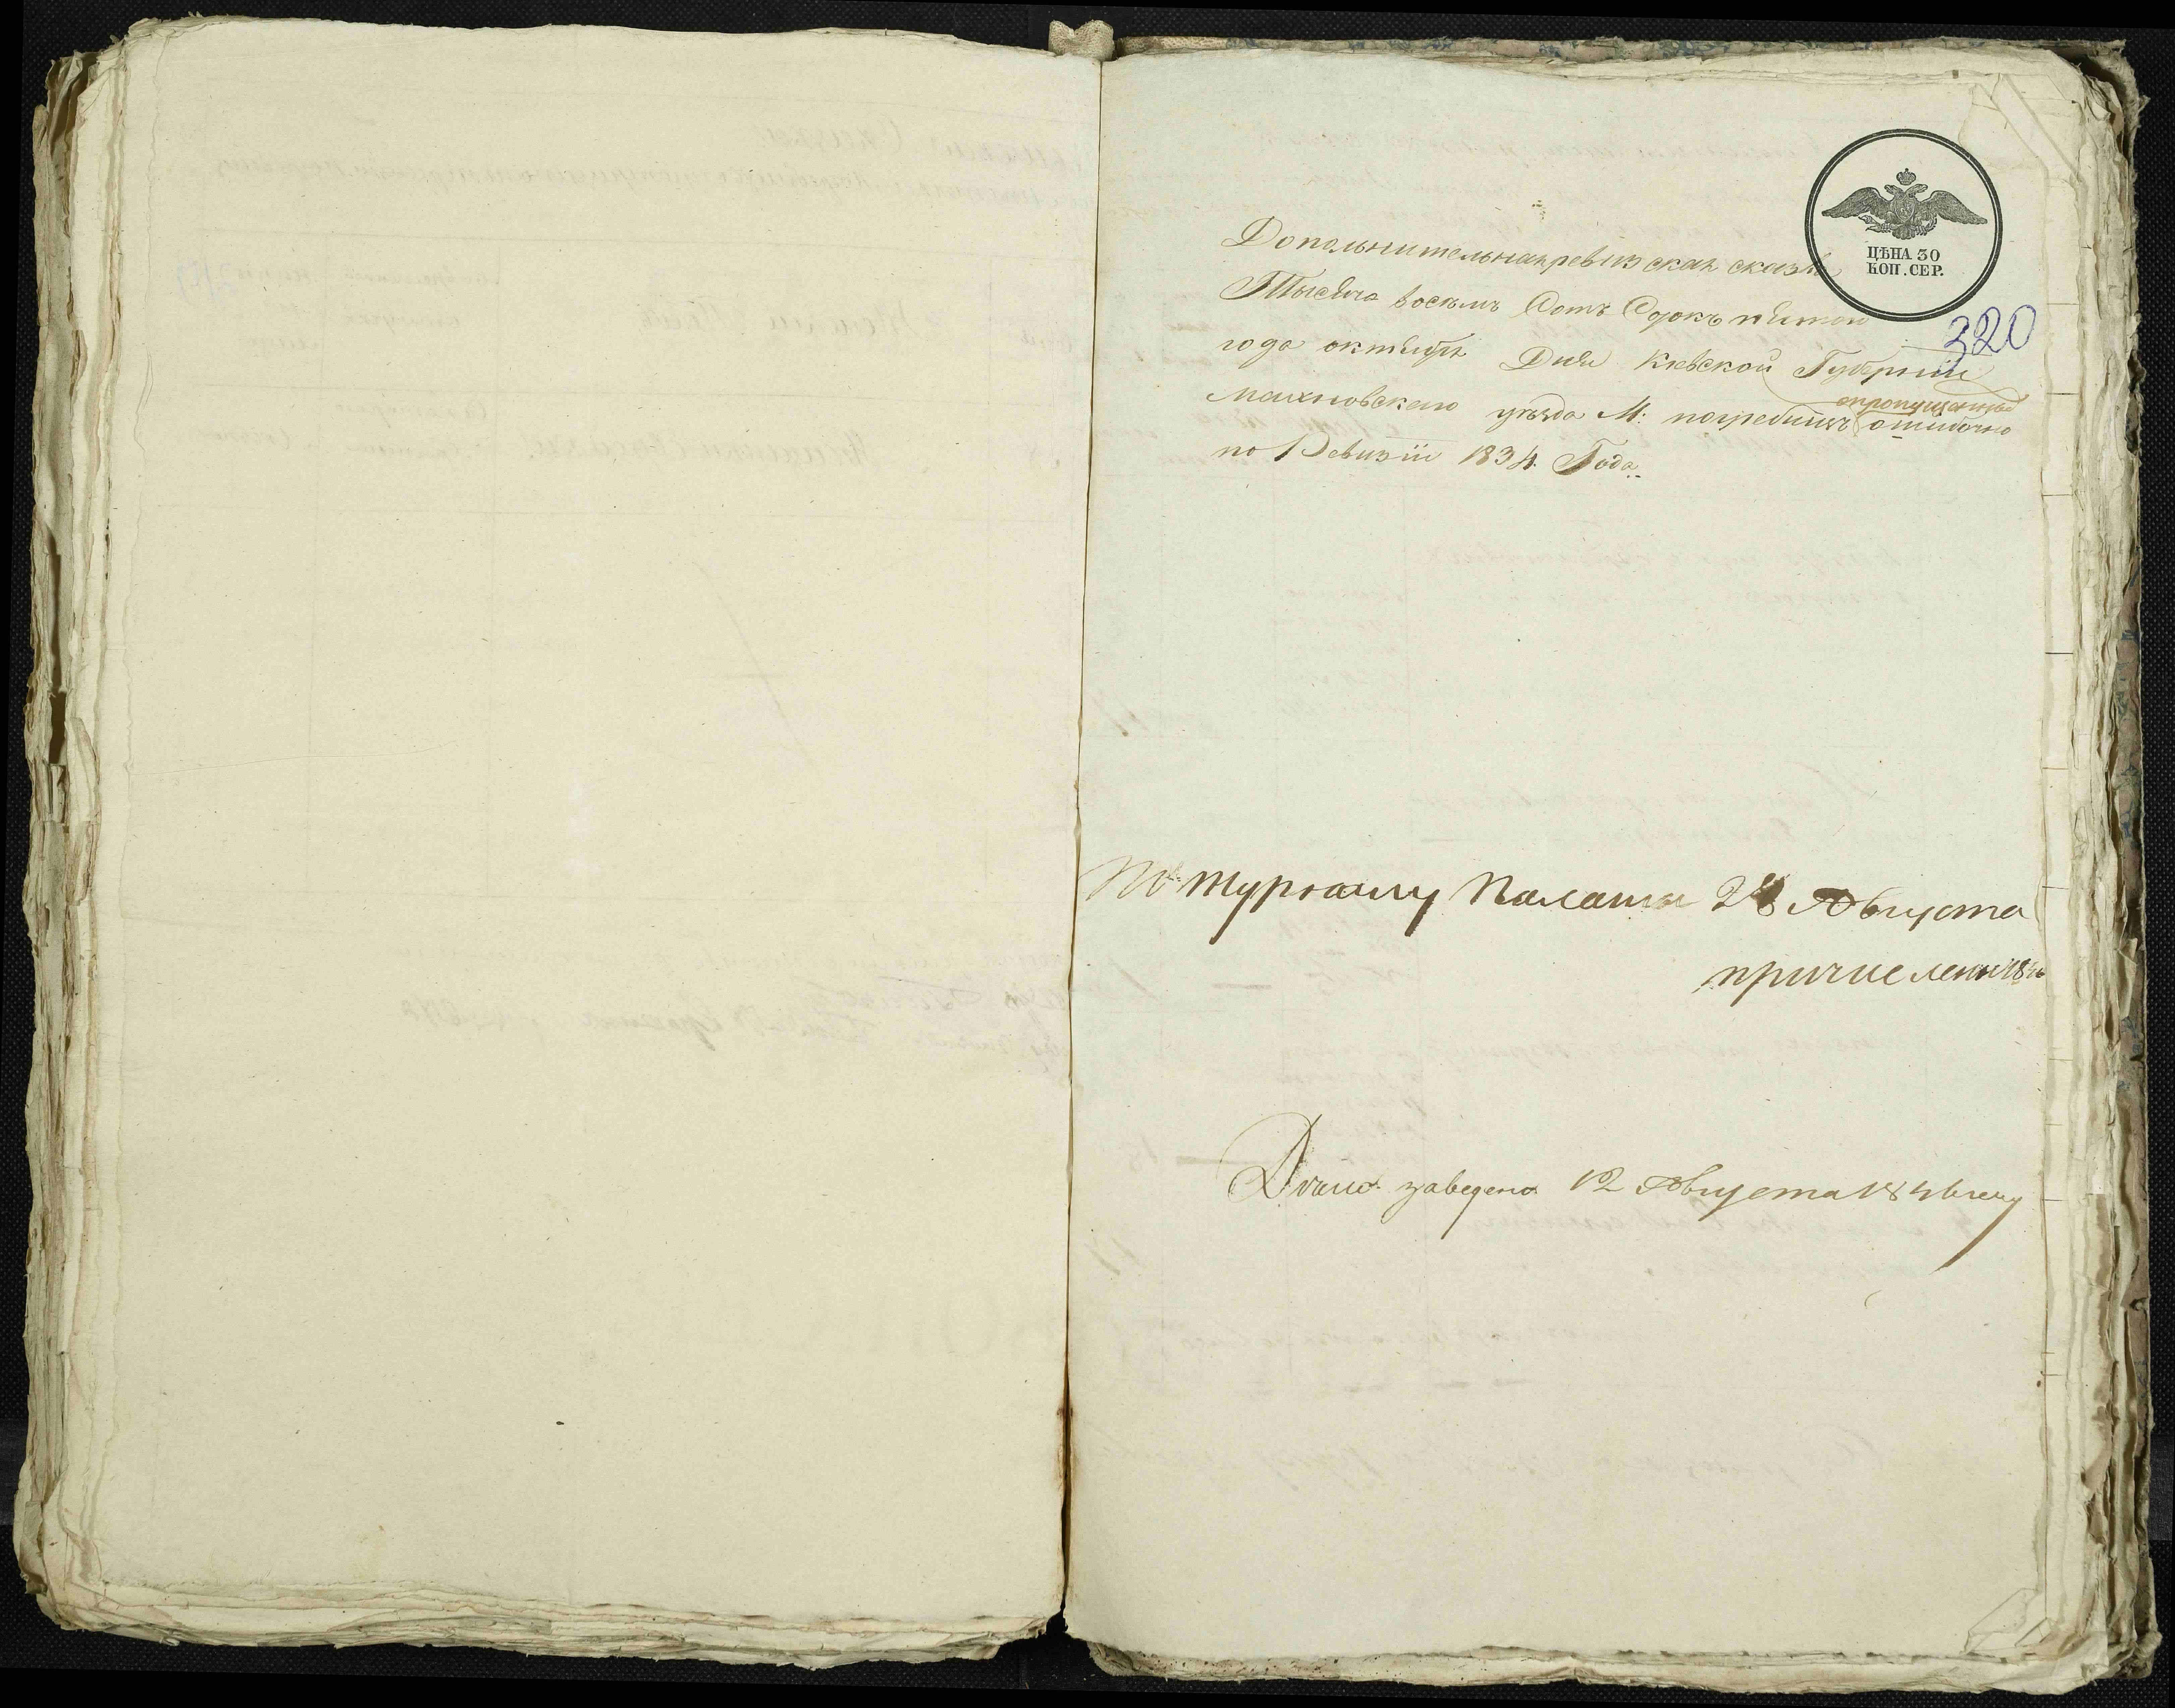 ЦѢНА 30
КОП. СЕР.
320
Дополнительная ревизская сказка
Тысяча восемь Сотъ Сорокъ пятого
года октября Дня Кіевской Губерніи
махновского уѣзда М: погребищъ опропущенныхъ ошибочно
по Ревизіи 1834. Года.
По журналу Палаты 28 Августа
причислены 1846
заведено 12 Августа 1846 году